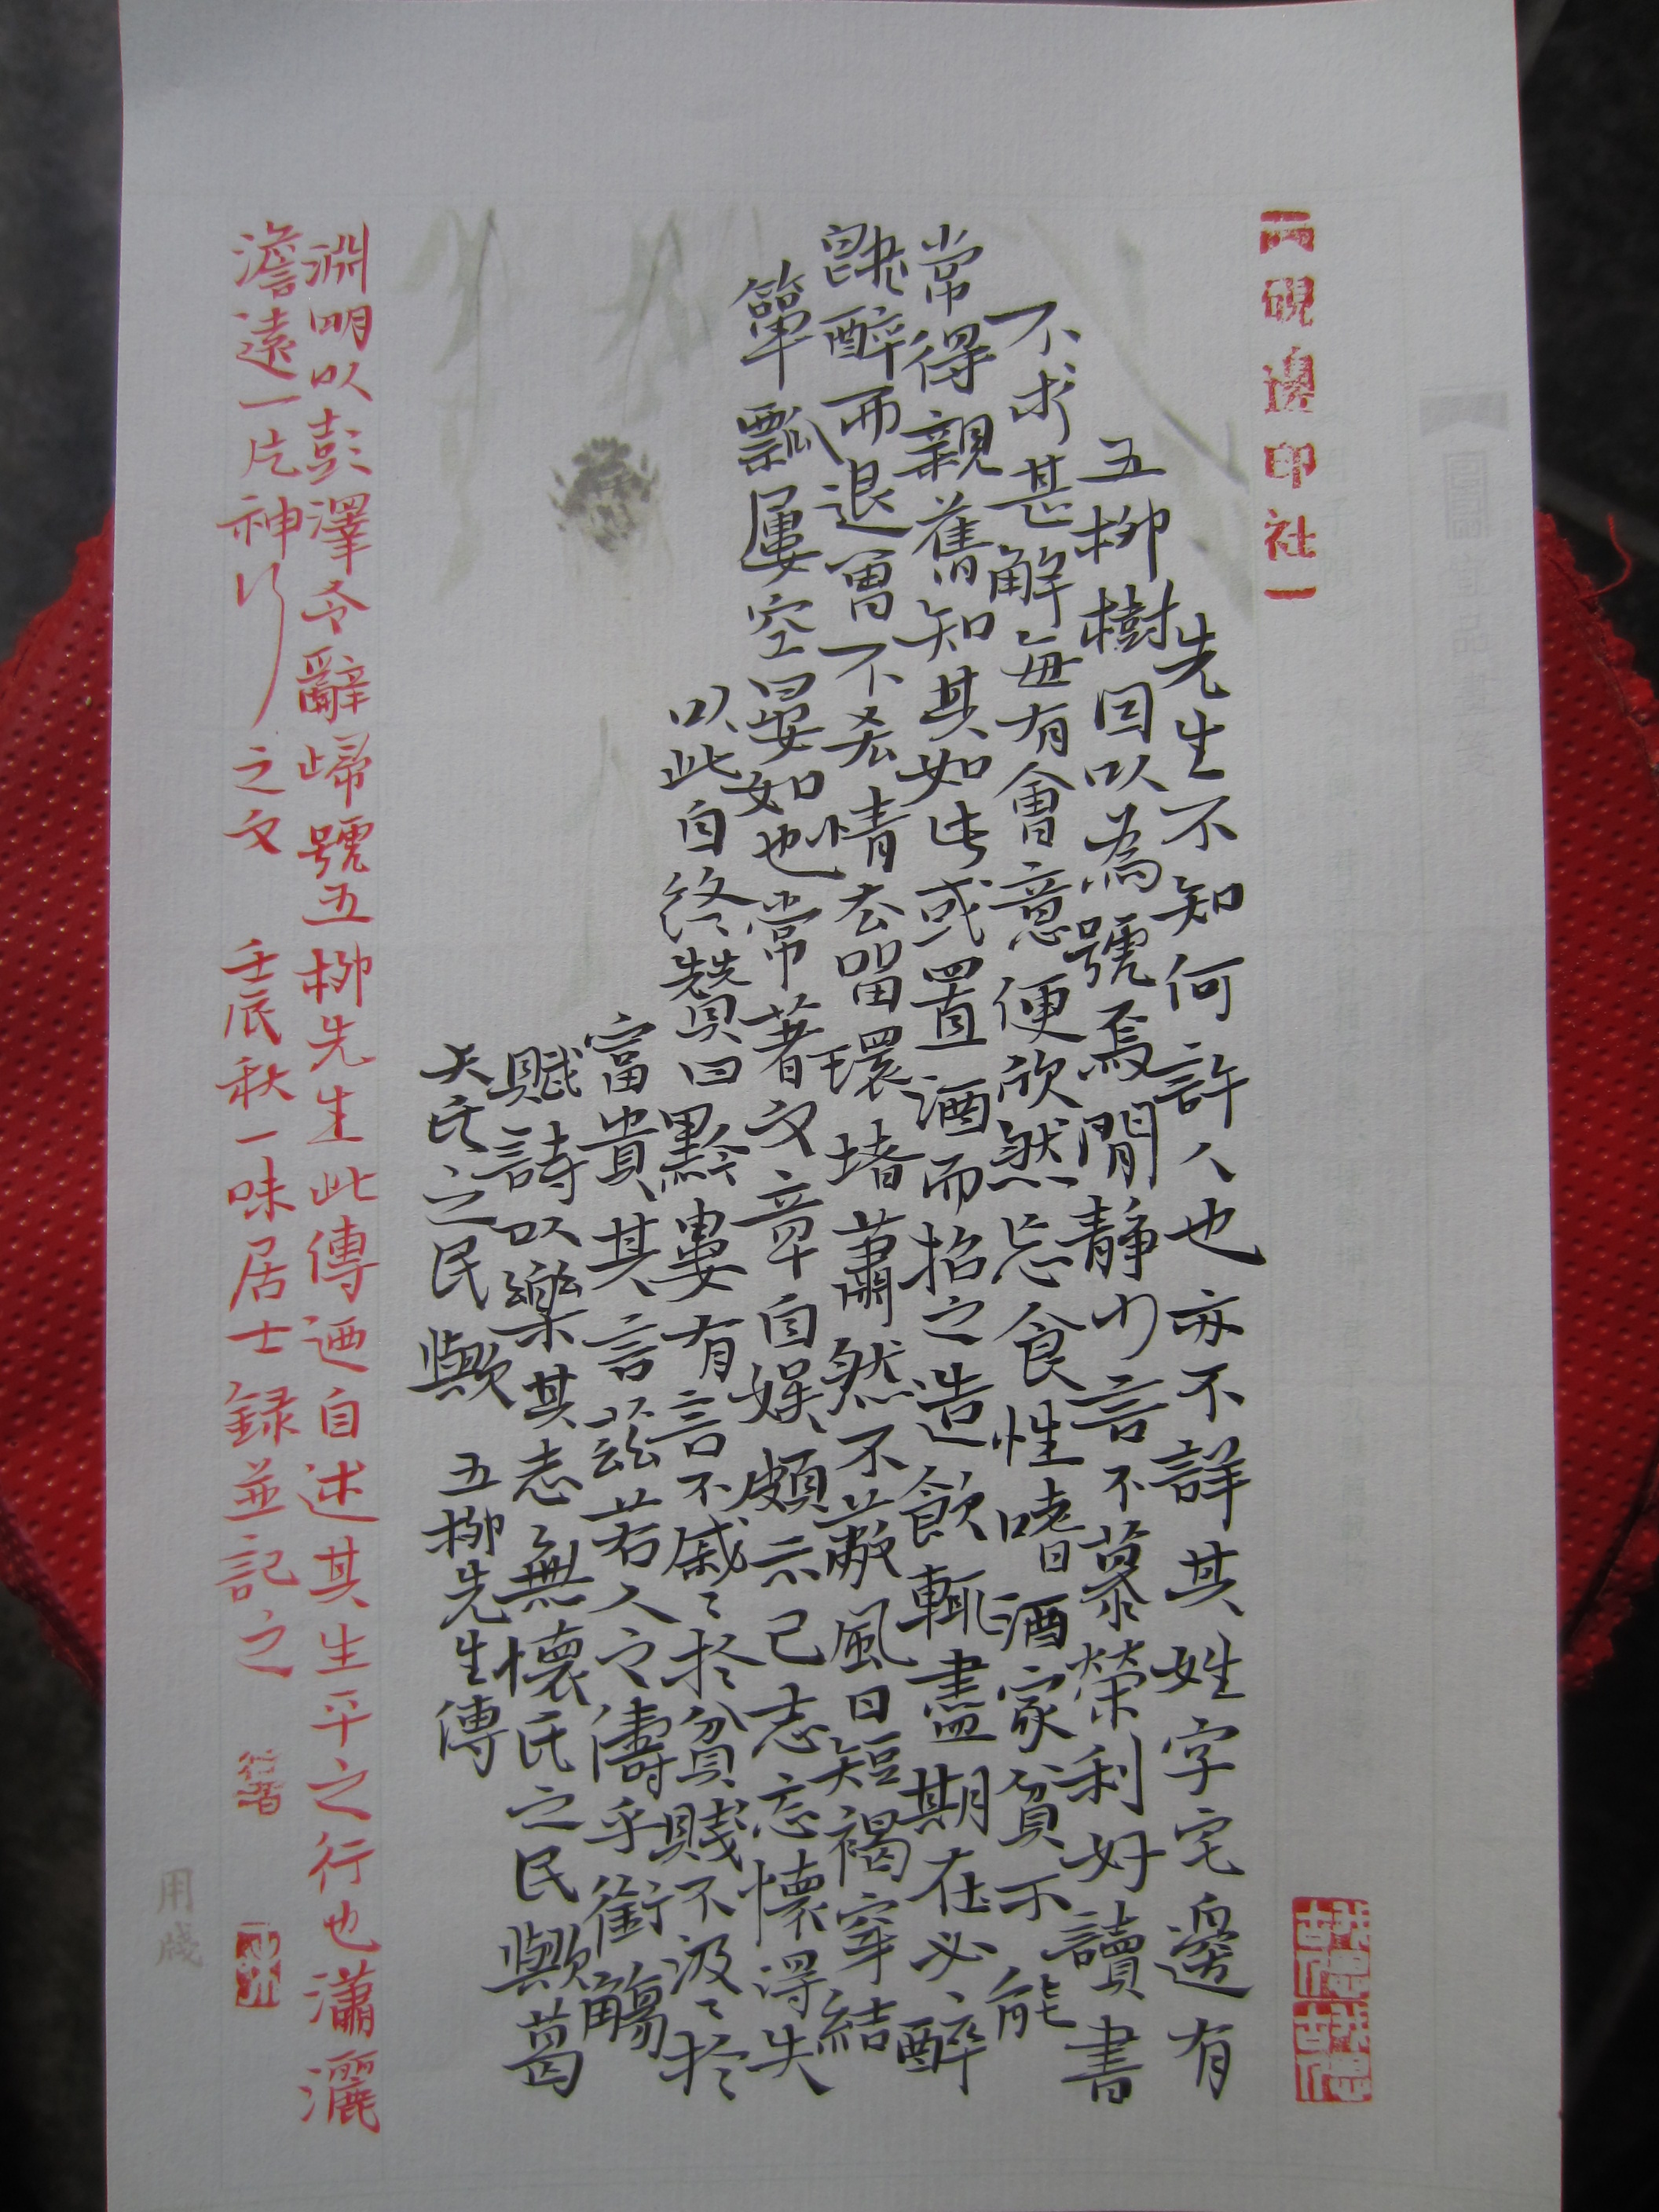 硯邊印社
先生不知何許人也亦不詳其姓字宅邊有
五柳樹因以為號焉閒靜少言不慕榮利好讀書
不求甚解每有會意便欣然忘食性嗜酒家貧不能
常得親舊知其如此或置酒而招之造飲輒盡期在必醉
既醉而退曾不吝情去留環堵蕭然不蔽風日短褐穿結
簞瓢屢空曰晏如也常著文章自娛頗示己志忘懷得失
以此自終贊曰黔婁有言不戚〻於貧賤不汲〻於
富貴其言茲若人之儔乎銜觴
賦詩以樂其志無懷氏之民歟葛
天氏之民歟 五柳先生傳
淵明以彭澤令辭歸號五柳先生此傳迺自述其生平之行也瀟灑
澹遠一片神行之文 壬辰秋一味居士録並記之
用箋